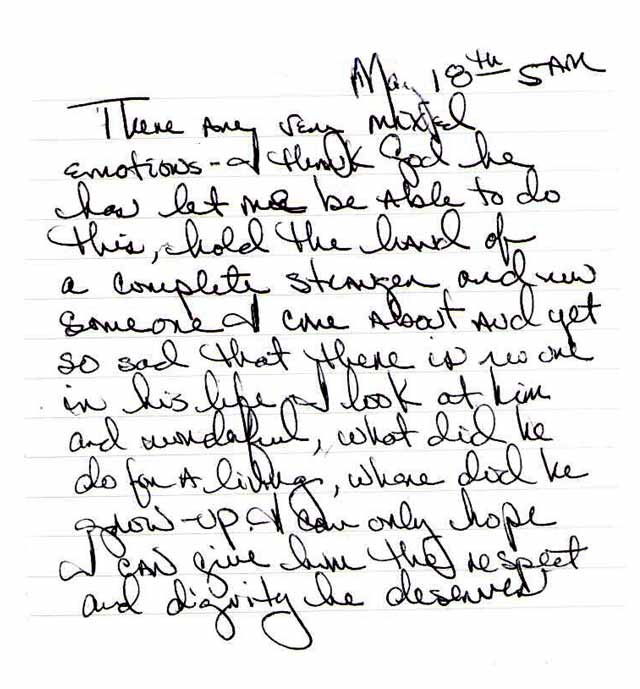 May 18th 5AM
There are very mixed
emotions - I think God he
has let me be able to do
this, hold the hand of
a complete stranger and now
someone I care about and yet
so sad that there is no one
in his life I look at him
and wonderful, what did he
do for a living, where did he
grow-up. I can only hope
I can give him the respect
and dignity he deserves